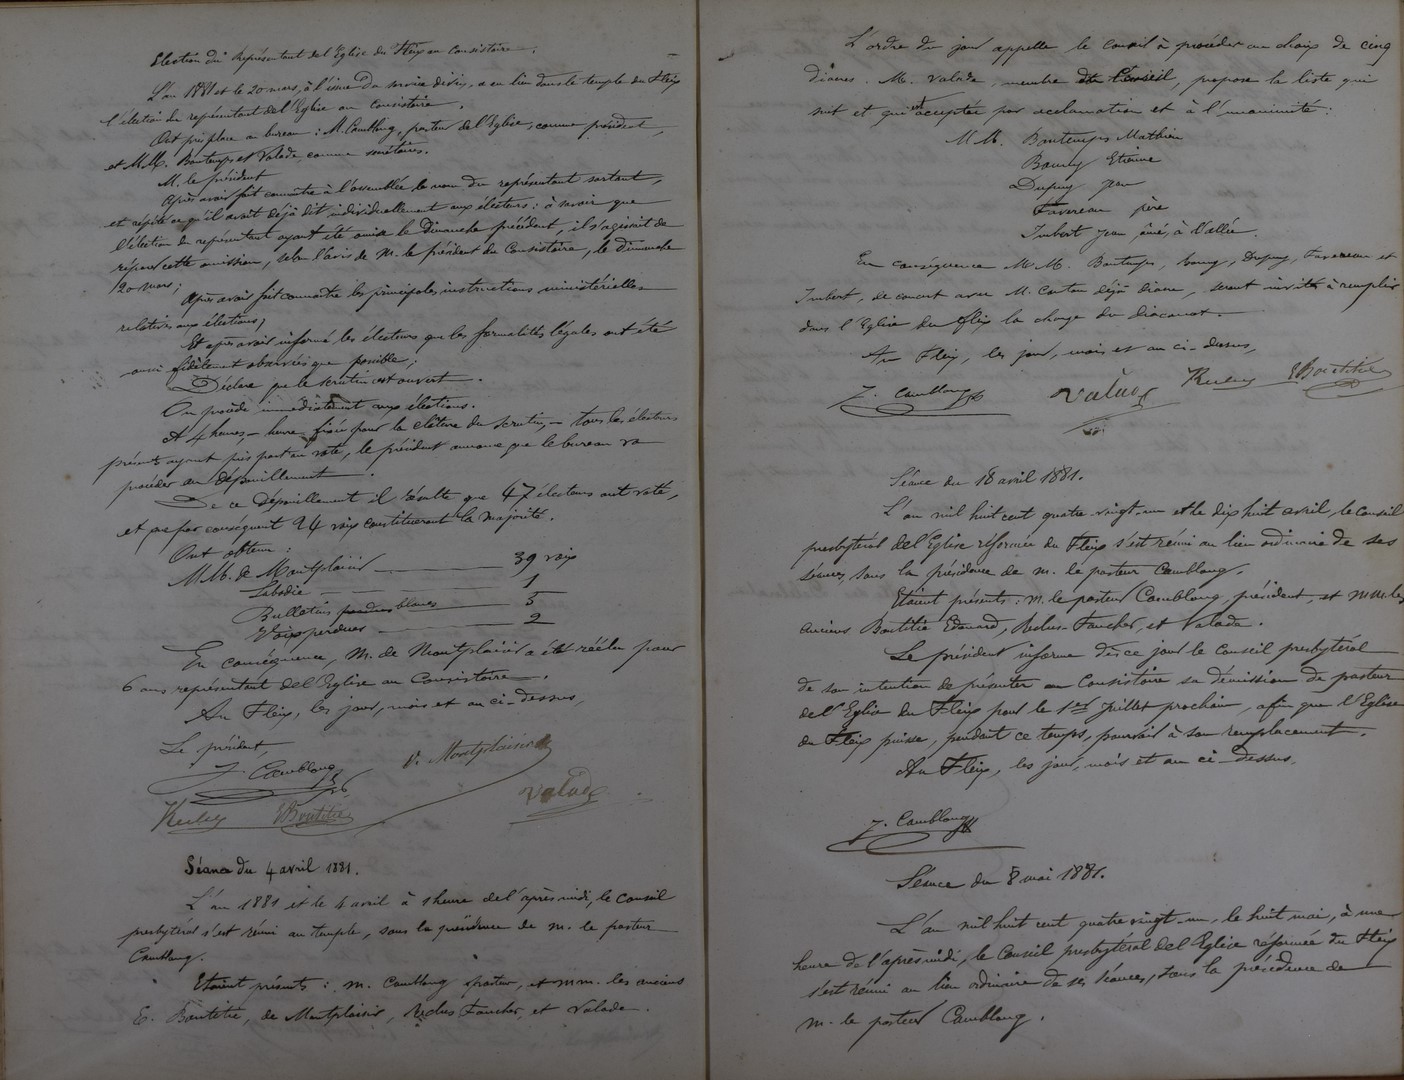 Election du Représentant de l'Eglise du Fleix au Consistoire.
L'an 1881 et le 20 mars, à l'issue du service divin, a eu lieu dans le temple du Fleix
l'élection du représentant de l'Eglise au Consistoire.
Ont pris place au bureau : M. Camblong, pasteur de l'Eglise, comme président,
et M.M. Bontemps et Valade, comme secrétaires.
M. le président
Après avoir fait connaître à l'assemblée le nom du représentant sortant,
et répété ce qu'il avait déjà dit individuellement aux électeurs : à savoir que
l'élection du représentant ayant été omise le Dimanche précédent, il s'agissait de
réparer cette omission, selon l'avis de M. le président du Consistoire, le dimanche
20 mars ;
Après avoir fait connaître les principales instructions ministérielles
relatives aux élections,
Et après avoir informé les électeurs que les formalités légales ont été
aussi fidèlement observées que possible ;
Déclare que le scrutin est ouvert.
On procède immédiatement aux élections.
A 4 heures, – heure fixée pour la clôture du scrutin, – tous les électeurs
présents ayant pris part au vote, le président annonce que le bureau va
procéder au dépouillement.
De ce dépouillement il résulte que 47 électeurs ont voté,
et que par conséquent 24 voix constitueront la majorité.
Ont obtenu :
MM. de Montplaisir 39 voix
Labadie 1
Bulletins blancs 5
Voix perdues 2
En conséquence, M. de Montplaisir a été réélu pour
6 ans représentant de l'Eglise au Consistoire.
Au Fleix, les jour, mois et an ci-dessus,
Le président
J. Camblong
V. Montplaisir
Reclus EBoutitie Valade
Séance du 4 avril 1881.
L'an 1881 et le 4 avril à 1 heure de l'après midi, le Conseil
presbytéral s'est réuni au temple, sous la présidence de M. le pasteur
Camblong.
Etaient présents : M. Camblong pasteur, et MM. les anciens
E. Boutitie, de Montplaisir, Reclus Faucher, et Valade.
L'ordre du jour appelle le conseil à procéder au choix de cinq
diacres. M. Valade, membre du Conseil, propose la liste qui
suit et qui est acceptée par acclamation et à l'unanimité :
MM. Bontemps Mathieu
Etienne
Dupuy Jean
Favereau père
Imbert Jean, aîné, à Vallée.
En conséquence M.M. Bontemps, Dupuy, Favereau et
Imbert, de concert avec M. déjà diacre, seront invités à remplir
dans l'Eglise du Fleix la charge du diaconat.
Au Fleix, les jour, mois et an ci-dessus,
J. Camblong Valade Reclus EBoutitie
Séance du 18 avril 1881.
L'an mil huit cent quatre-vingt-un et le dix huit avril, le Conseil
presbytéral de l'Eglise réformée du Fleix s'est réuni au lieu ordinaire de ses
séances, sous la présidence de M. le pasteur Camblong.
Etaient présents : M. le pasteur Camblong, président, et MM. les
anciens Boutitie Edouard, Reclus-Faucher, et Valade.
Le président informe dès ce jour le Conseil presbytéral
de son intention de présenter au Consistoire sa démission de pasteur
de l'Eglise du Fleix pour le 1er Juillet prochain, afin que l'Eglise
du Fleix puisse, pendant ce temps, pourvoir à son remplacement.
Au Fleix, les jour, mois et an ci-dessus.
J. Camblong
Séance du 8 mai 1881.
L'an mil huit cent quatre vingt-un, le huit mai, à une
heure de l'après midi, le Conseil presbytéral de l'Eglise réformée du Fleix
s'est réuni au lieu ordinaire de ses séances, sous la présidence de
M. le pasteur Camblong.